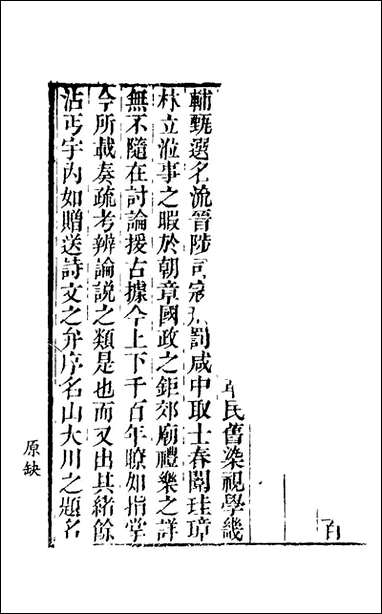 民舊染視學畿
輔甄選名流晉陟司寇刑罰咸中取士春闈珪璋
林立涖事之暇於朝章國政之鉅郊廟禮樂之詳
無不隨在討論援古據今上下千百年瞭如指掌
今所載奏疏考辨論說之類是也而又出其緒餘
沾丐宇內如贈送詩文之弁序名山大川之題名
原缺